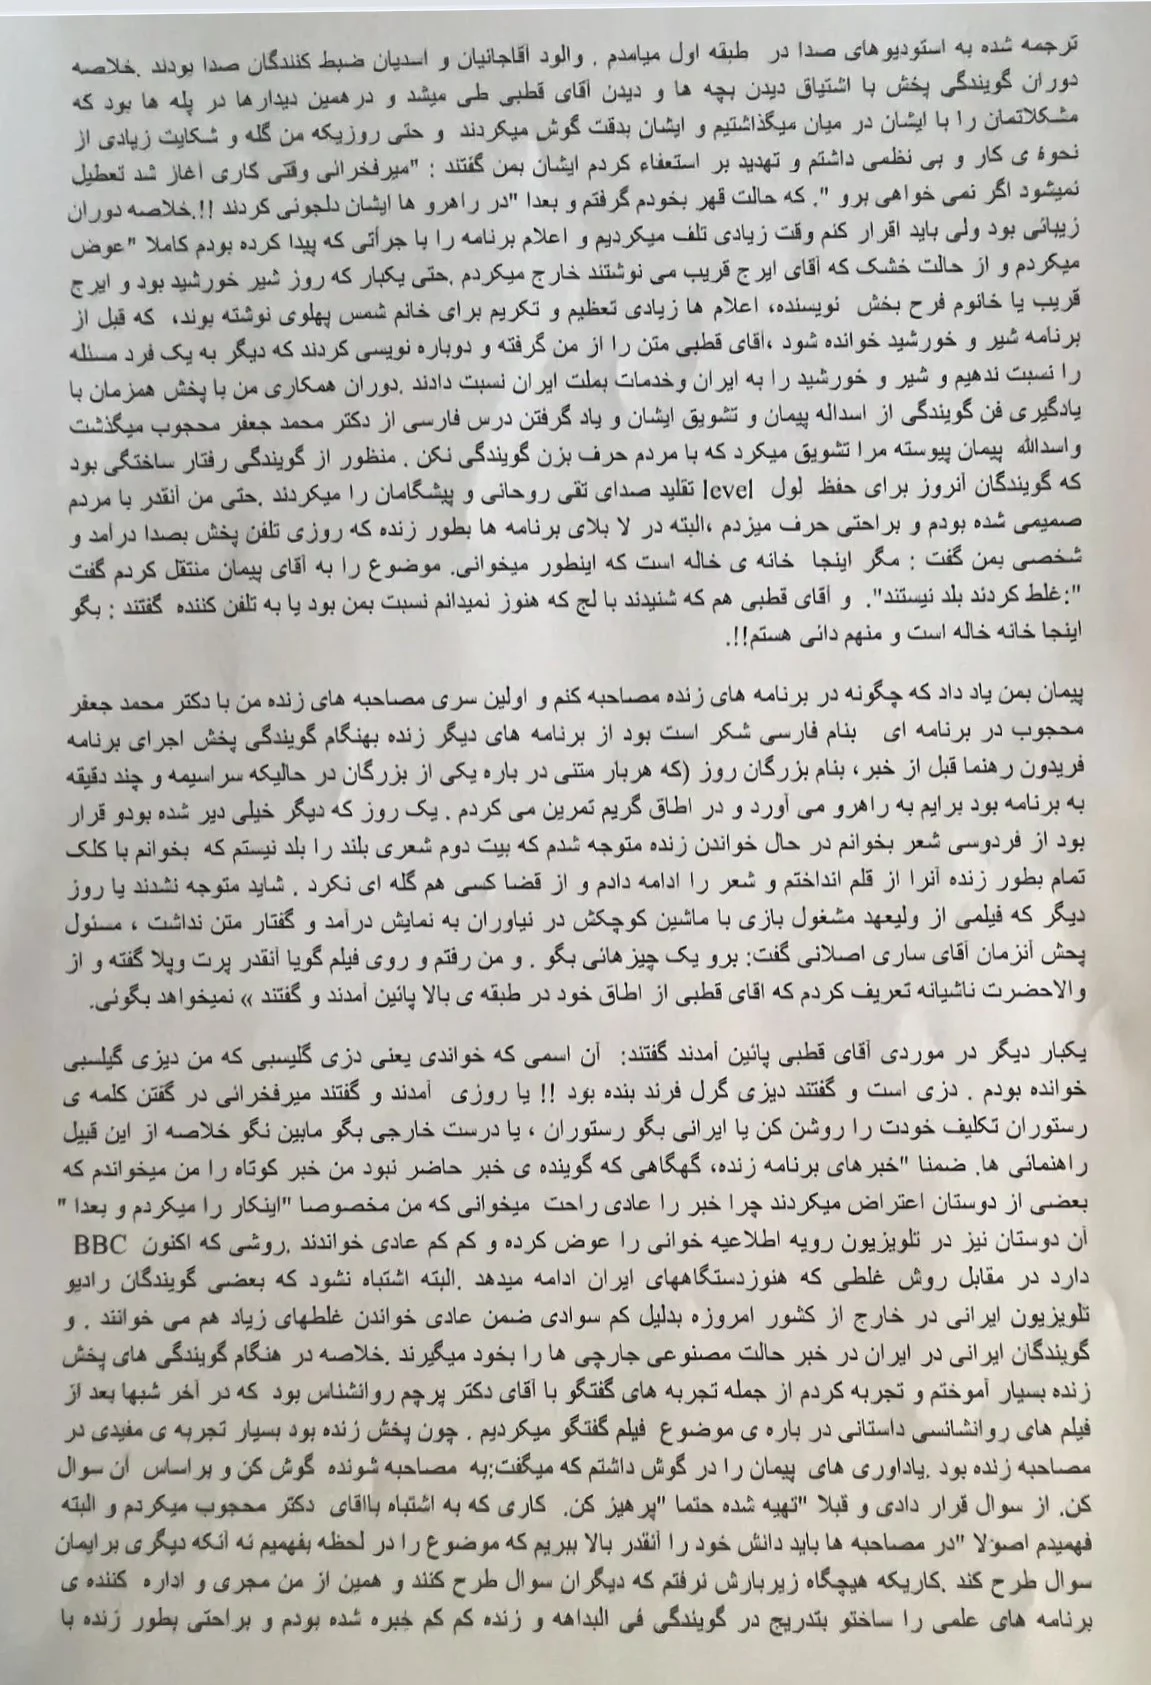 ترجمه شده به استودیوهای صدا در طبقه اول میامدم . والود آقاجانیان و اسدیان ضبط کنندگان صدا بودند .خلاصه
دوران گویندگی پخش با اشتیاق دیدن بچه ها و دیدن آقای قطبی طی میشد و درهمین دیدارها در پله ها بود که
مشکلاتمان را با ایشان در میان میگذاشتیم و ایشان بدقت گوش میکردند و حتی روزیکه من گله و شکایت زیادی از
نحوۀ ی کار و بی نظمی داشتم و تهدید بر استعفاء کردم ایشان بمن گفتند : "میرفخرائی وقتی کاری آغاز شد تعطیل
نمیشود اگر نمی خواهی برو ". که حالت قهر بخودم گرفتم و بعدا "در راهرو ها ایشان دلجوئی کردند !!.خلاصه دوران
زیبائی بود ولی باید اقرار کنم وقت زیادی تلف میکردیم و اعلام برنامه را با جرأتی که پیدا کرده بودم کاملا "عوض
میکردم و از حالت خشک که آقای ایرج قریب می نوشتند خارج میکردم .حتی یکبار که روز شیر خورشید بود و ایرج
قریب یا خانوم فرح بخش نویسنده، اعلام ها زیادی تعظیم و تکریم برای خانم شمس پهلوی نوشته بوند، که قبل از
برنامه شیر و خورشید خوانده شود ،آقای قطبی متن را از من گرفته و دوباره نویسی کردند که دیگر به یک فرد مسئله
را نسبت ندهیم و شیر و خورشید را به ایران وخدمات بملت ایران نسبت دادند .دوران همکاری من با پخش همزمان با
یادگیری فن گویندگی از اسداله پیمان و تشویق ایشان و یاد گرفتن درس فارسی از دکتر محمد جعفر محجوب میگذشت
واسدالله پیمان پیوسته مرا تشویق میکرد که با مردم حرف بزن گویندگی نکن . منظور از گویندگی رفتار ساختگی بود
که گویندگان آنروز برای حفظ لول level تقلید صدای تقی روحانی و پیشگامان را میکردند .حتی من آنقدر با مردم
صمیمی شده بودم و براحتی حرف میزدم ،البته در لا بلای برنامه ها بطور زنده که روزی تلفن پخش بصدا درامد و
شخصی بمن گفت : مگر اینجا خانه ی خاله است که اینطور میخوانی. موضوع را به آقای پیمان منتقل کردم گفت
":غلط کردند بلد نیستند". و آقای قطبی هم که شنیدند با لج که هنوز نمیدانم نسبت بمن بود یا به تلفن کننده گفتند : بگو
اینجا خانه خاله است و منهم دائی هستم!!.
پیمان بمن یاد داد که چگونه در برنامه های زنده مصاحبه کنم و اولین سری مصاحبه های زنده من با دکتر محمد جعفر
محجوب در برنامه ای بنام فارسی شکر است بود از برنامه های دیگر زنده بهنگام گویندگی پخش اجرای برنامه
فریدون رهنما قبل از خبر، بنام بزرگان روز (که هربار متنی در باره یکی از بزرگان در حالیکه سراسیمه و چند دقیقه
به برنامه بود برایم به راهرو می آورد و در اطاق گریم تمرین می کردم . یک روز که دیگر خیلی دیر شده بودو قرار
بود از فردوسی شعر بخوانم در حال خواندن زنده متوجه شدم که بیت دوم شعری بلند را بلد نیستم که بخوانم با کلک
تمام بطور زنده آنرا از قلم انداختم و شعر را ادامه دادم و از قضا کسی هم گله ای نکرد . شاید متوجه نشدند یا روز
دیگر که فیلمی از ولیعهد مشغول بازی با ماشین کوچکش در نیاوران به نمایش درآمد و گفتار متن نداشت ، مسئول
پحش آنزمان آقای ساری اصلانی گفت: برو یک چیزهائی بگو . و من رفتم و روی فیلم گویا آنقدر پرت وپلا گفته و از
والاحضرت ناشیانه تعریف کردم که اقای قطبی از اطاق خود در طبقه ی بالا پائین آمدند و گفتند » نمیخواهد بگوئی.
یکبار دیگر در موردی آقای قطبی پائین آمدند گفتند: آن اسمی که خواندی یعنی دزی گلیسبی که من دیزی گیلسبی
خوانده بودم . دزی است و گفتند دیزی گرل فرند بنده بود !! یا روزی آمدند و گفتند میرفخرائی در گفتن کلمه ی
رستوران تکلیف خودت را روشن کن یا ایرانی بگو رستوران ، یا درست خارجی بگو مابین نگو خلاصه از این قبیل
راهنمائی ها. ضمنا "خبرهای برنامه زنده، گهگاهی که گوینده ی خبر حاضر نبود من خبر کوتاه را من میخواندم که
بعضی از دوستان اعتراض میکردند چرا خبر را عادی راحت میخوانی که من مخصوصا "اینکار را میکردم و بعدا "
آن دوستان نیز در تلویزیون رویه اطلاعیه خوانی را عوض کرده و کم کم عادی خواندند .روشی که اکنون BBC
دارد در مقابل روش غلطی که هنوزدستگاههای ایران ادامه میدهد .البته اشتباه نشود که بعضی گویندگان رادیو
تلویزیون ایرانی در خارج از کشور امروزه بدلیل کم سوادی ضمن عادی خواندن غلطهای زیاد هم می خوانند . و
گویندگان ایرانی در ایران در خبر حالت مصنوعی جارچی ها را بخود میگیرند .خلاصه در هنگام گویندگی های پخش
زنده بسیار آموختم و تجربه کردم از جمله تجربه های گفتگو با آقای دکتر پرچم روانشناس بود که در آخر شبها بعد از
فیلم های روانشانسی داستانی در باره ی موضوع فیلم گفتگو میکردیم . چون پخش زنده بود بسیار تجربه ی مفیدی در
مصاحبه زنده بود .یاداوری های پیمان را در گوش داشتم که میگفت:به مصاحبه شونده گوش کن و بر اساس آن سوال
کن. از سوال قرار دادی و قبلا "تهیه شده حتما "پرهیز کن. کاری که به اشتباه بااقای دکتر محجوب میکردم و البته
فهمیدم اصولا "در مصاحبه ها باید دانش خود را آنقدر بالا ببریم که موضوع را در لحظه بفهمیم نه آنکه دیگری برایمان
سوال طرح کند .کاریکه هیچگاه زیربارش نرفتم که دیگران سوال طرح کنند و همین از من مجری و اداره کننده ی
برنامه های علمی را ساختو بتدریج در گویندگی فی البداهه و زنده کم کم خبره شده بودم و براحتی بطور زنده با